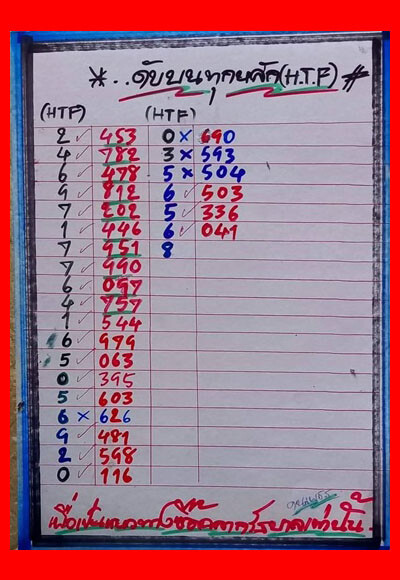 *..ดับบนทุกหลัก(H.T.F)#
(HTF) (HTF)
2 ✓ 453 0 × 690
4 ✓ 782 3 × 593
6 ✓ 478 5 × 504
9 ✓ 812 6 ✓ 503
7 ✓ 202 5 ✓ 336
1 ✓ 446 6 ✓ 041
7 ✓ 951 8
7 ✓ 990
6 ✓ 097
4 ✓ 757
1 ✓ 544
6 ✓ 979
5 ✓ 063
0 ✓ 395
5 ✓ 603
6 × 626
9 ✓ 481
2 ✓ 598
0 ✓ 116
เพื่อเป็นแนวทางซื้อสลากรัฐบาลเท่านั้น.